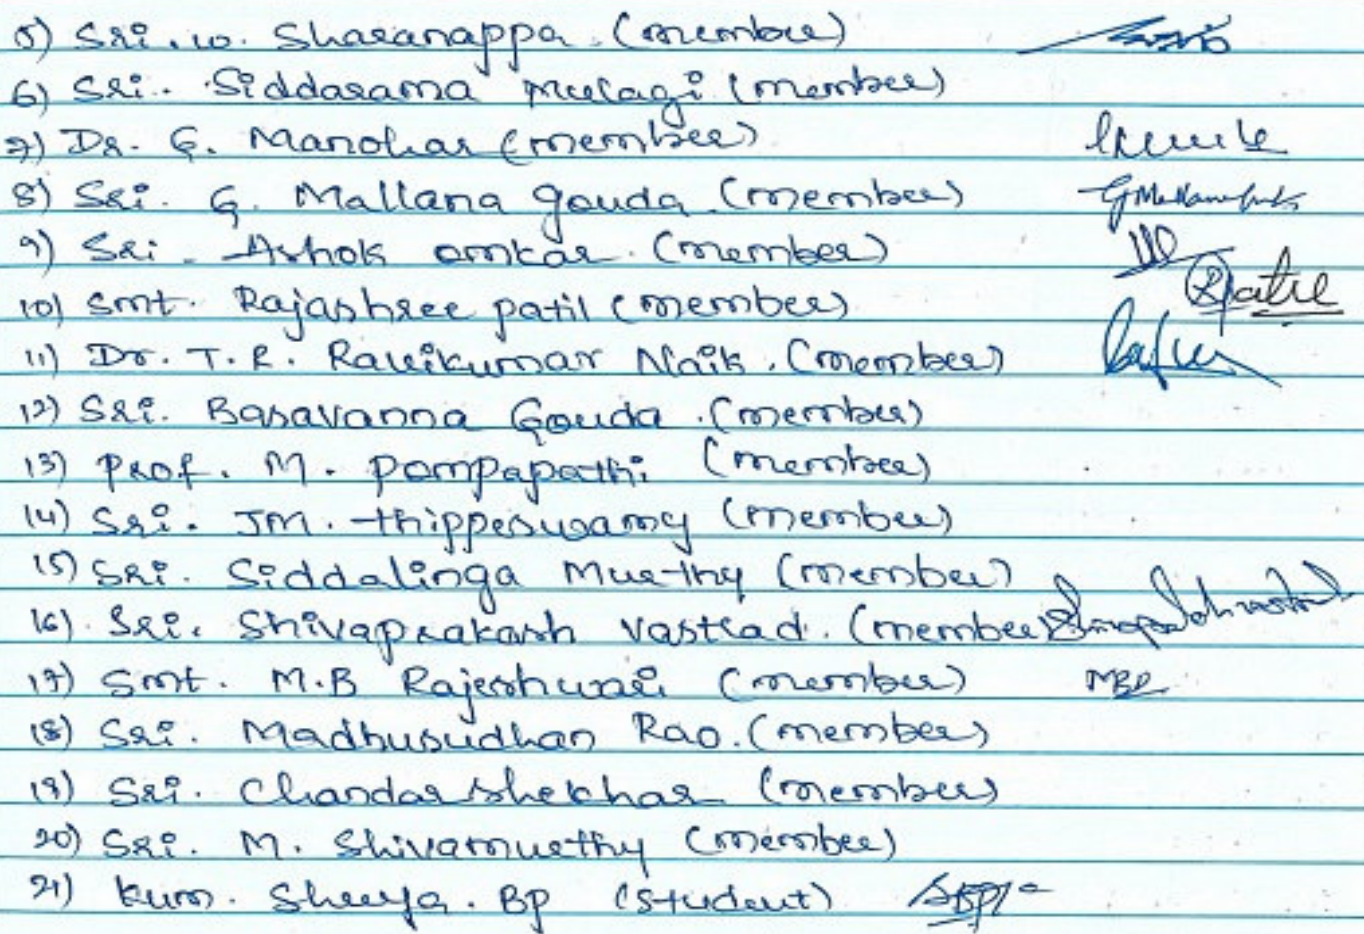 5) Sri. W. Sharanappa. (member)
6) Sri. Siddarama Mulagi (member)
7) Dr. G. Manohar (member)
8) Sri. G. Mallana gouda (member) GMallanagouda
9) Sri. Ashok omkar. (member)
10) Smt. Rajashree patil (member) RPatil
11) Dr. T. R. Ravikumar Naik. (member)
12) Sri. Basavanna Gouda. (member)
13) Prof. M. Pampapathi (member)
14) Sri. JM. thippeswamy (member)
15) Sri. Siddalinga Murthy (member)
16) Sri. Shivaprakash vastrad. (member)
17) Smt. M.B Rajeshwari (member) MBR
18) Sri. Madhusudhan Rao. (member)
19) Sri. Chandarshekhar (member)
20) Sri. M. Shivamurthy (member)
21) Kum. Shreya. BP (student)